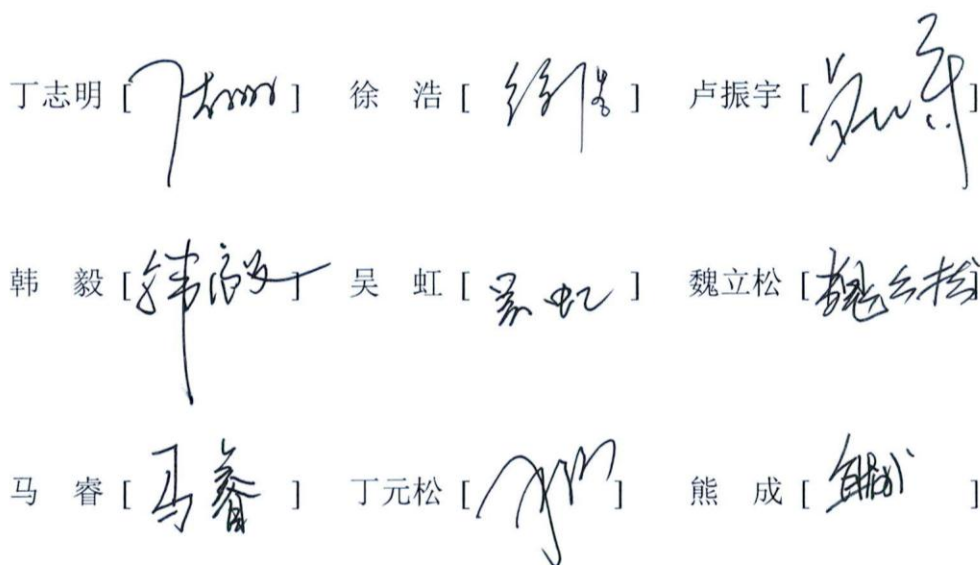 丁志明 [丁志明] 徐 浩 [徐浩] 卢振宇 [卢振宇]
韩 毅 [韩毅] 吴 虹 [吴虹] 魏立松 [魏立松]
马 睿 [马睿] 丁元松 [ ] 熊 成 [熊成]